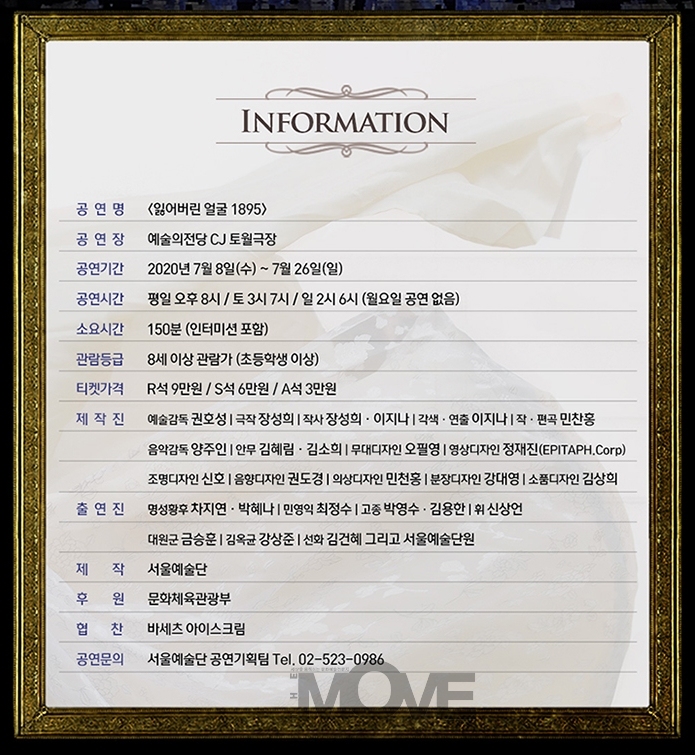 INFORMATION
공 연 명 〈잃어버린 얼굴 1895〉
공 연 장 예술의전당 CJ 토월극장
공연기간 2020년 7월 8일(수) ~ 7월 26일(일)
공연시간 평일 오후 8시 / 토 3시 7시 / 일 2시 6시 (월요일 공연 없음)
소요시간 150분 (인터미션 포함)
관람등급 8세 이상 관람가 (초등학생 이상)
티켓가격 R석 9만원 / S석 6만원 / A석 3만원
제 작 진 예술감독 권호성 | 극작 장성희 | 작사 장성희 · 이지나 | 각색 · 연출 이지나 | 작 · 편곡 민찬홍
음악감독 양주인 | 안무 김혜림 · 김소희 | 무대디자인 오필영 | 영상디자인 정재진(EPITAPH.Corp)
조명디자인 신호 | 음향디자인 권도경 | 의상디자인 민천홍 | 분장디자인 강대영 | 소품디자인 김상희
출 연 진 명성황후 차지연 · 박혜나 | 민영익 최정수 | 고종 박영수 · 김용한 | 휘 신상언
대원군 금승훈 | 김옥균 강상준 | 선화 김건혜 그리고 서울예술단원
제 작 서울예술단
후 원 문화체육관광부
협 찬 바세츠 아이스크림
공연문의 서울예술단 공연기획팀 Tel. 02-523-0986
THE MOVE